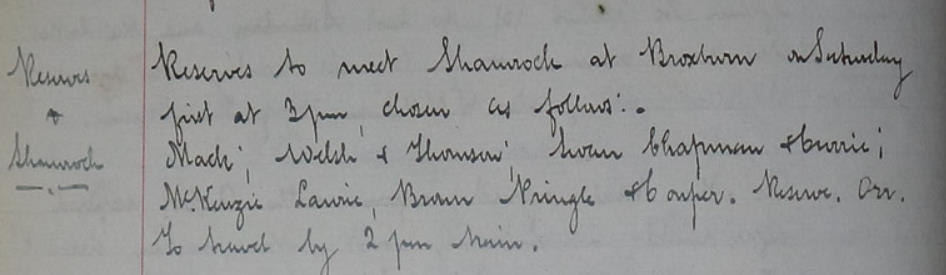 Reserves Reserves to meet Shamrock at Broxburn on Saturday
& first at 3 pm, chosen as follows:-
Shamrock Mack; Welsh & Thomson; Swan Chapman & Currie;
McKenzie Lawrie, Brown Pringle & Couper. Reserve. Orr.
To travel by 2 pm train.